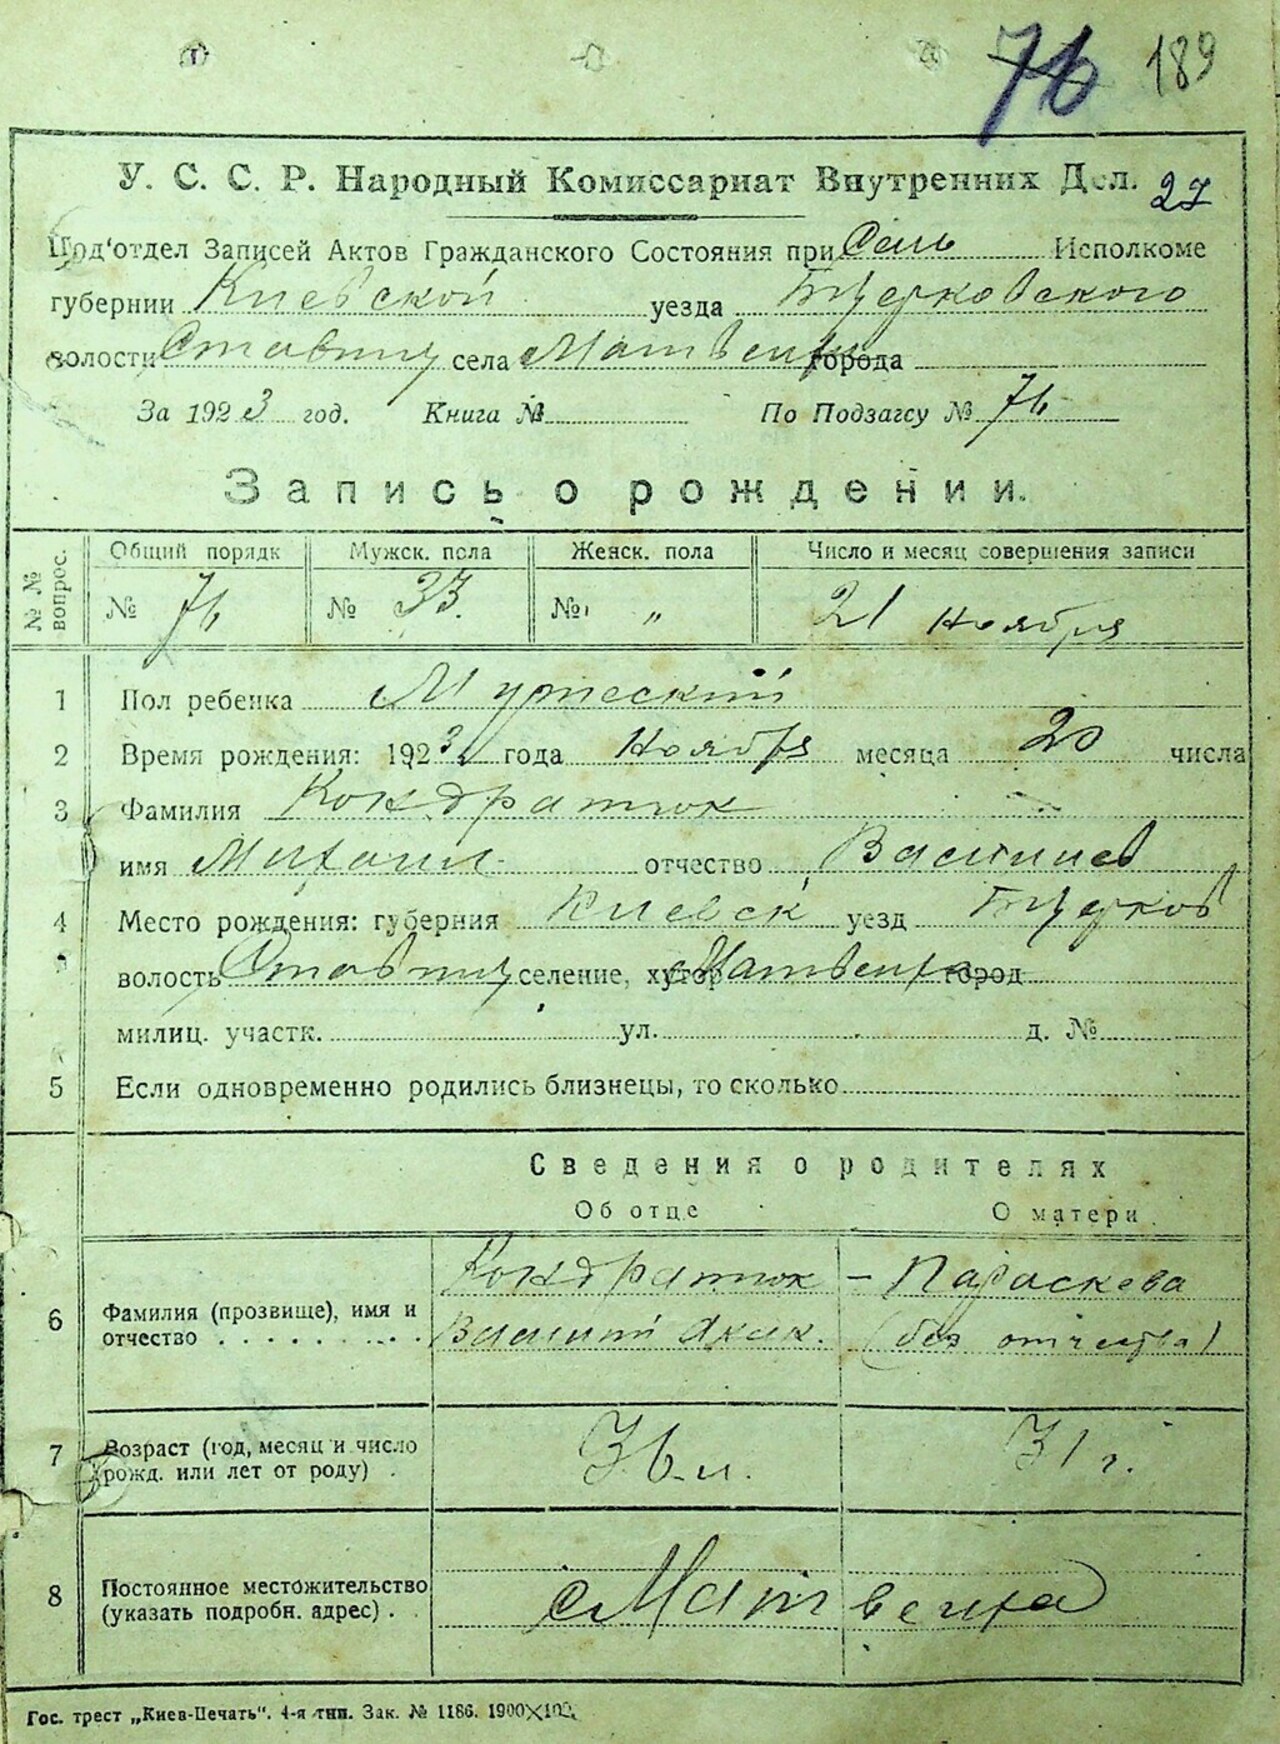 76 189
У. С. С. Р. Народный Комиссариат Внутренних Дел. 27
Под'отдел Записей Актов Гражданского Состояния при Сель Исполкоме
губернии Киевской уезда Бѣцерковского
волости Ставищ села Матвеиха города
За 1923 год. Книга № По Подзагсу № 76
Запись о рождении.
№ № вопрос. Общий порядк Мужск. пола Женск. пола Число и месяц совершения записи
№ 76 № 33. № „ 21 Ноября
1 Пол ребенка Мужеский
2 Время рождения: 1923 года Ноября месяца 20 числа
3 Фамилия Кондратюк
имя Михаил отчество Васильев
4 Место рождения: губерния Киевск уезд Бѣцерков
волость Ставищ селение, хутор Матвеиха город
милиц. участк. ул. д. №
5 Если одновременно родились близнецы, то сколько
Сведения о родителях
Об отце О матери
Кондратюк – Параскева
6 Фамилия (прозвище), имя и
отчество Василий Акак. (без отчества)
7 Возраст (год, месяц и число
рожд. или лет от роду) . 36 л. 31 г.
8 Постоянное местожительство
(указать подробн. адрес) . с Матвеиха
Гос. трест „Киев-Печать“. 4-я тип. Зак. № 1186. 1900×100.